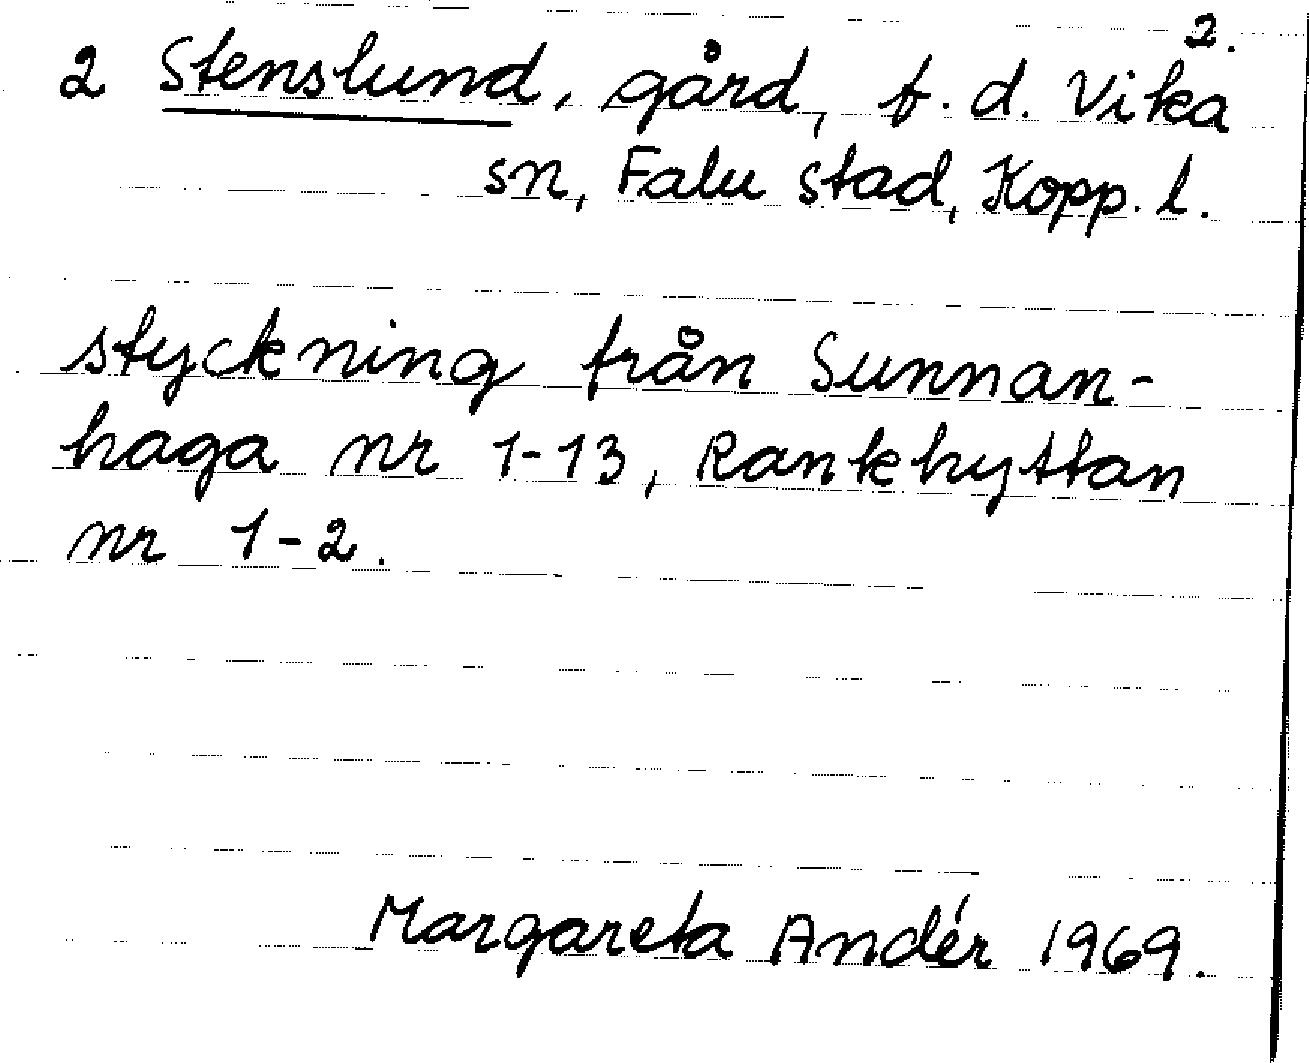 2.
2 Stenslund, gård, f.d. Vika
sn, Falu stad, Kopp. l.
styckning från Sunnan-
haga nr 1-13, Rankhyttan
nr 1-2.
Margareta Andér 1969.